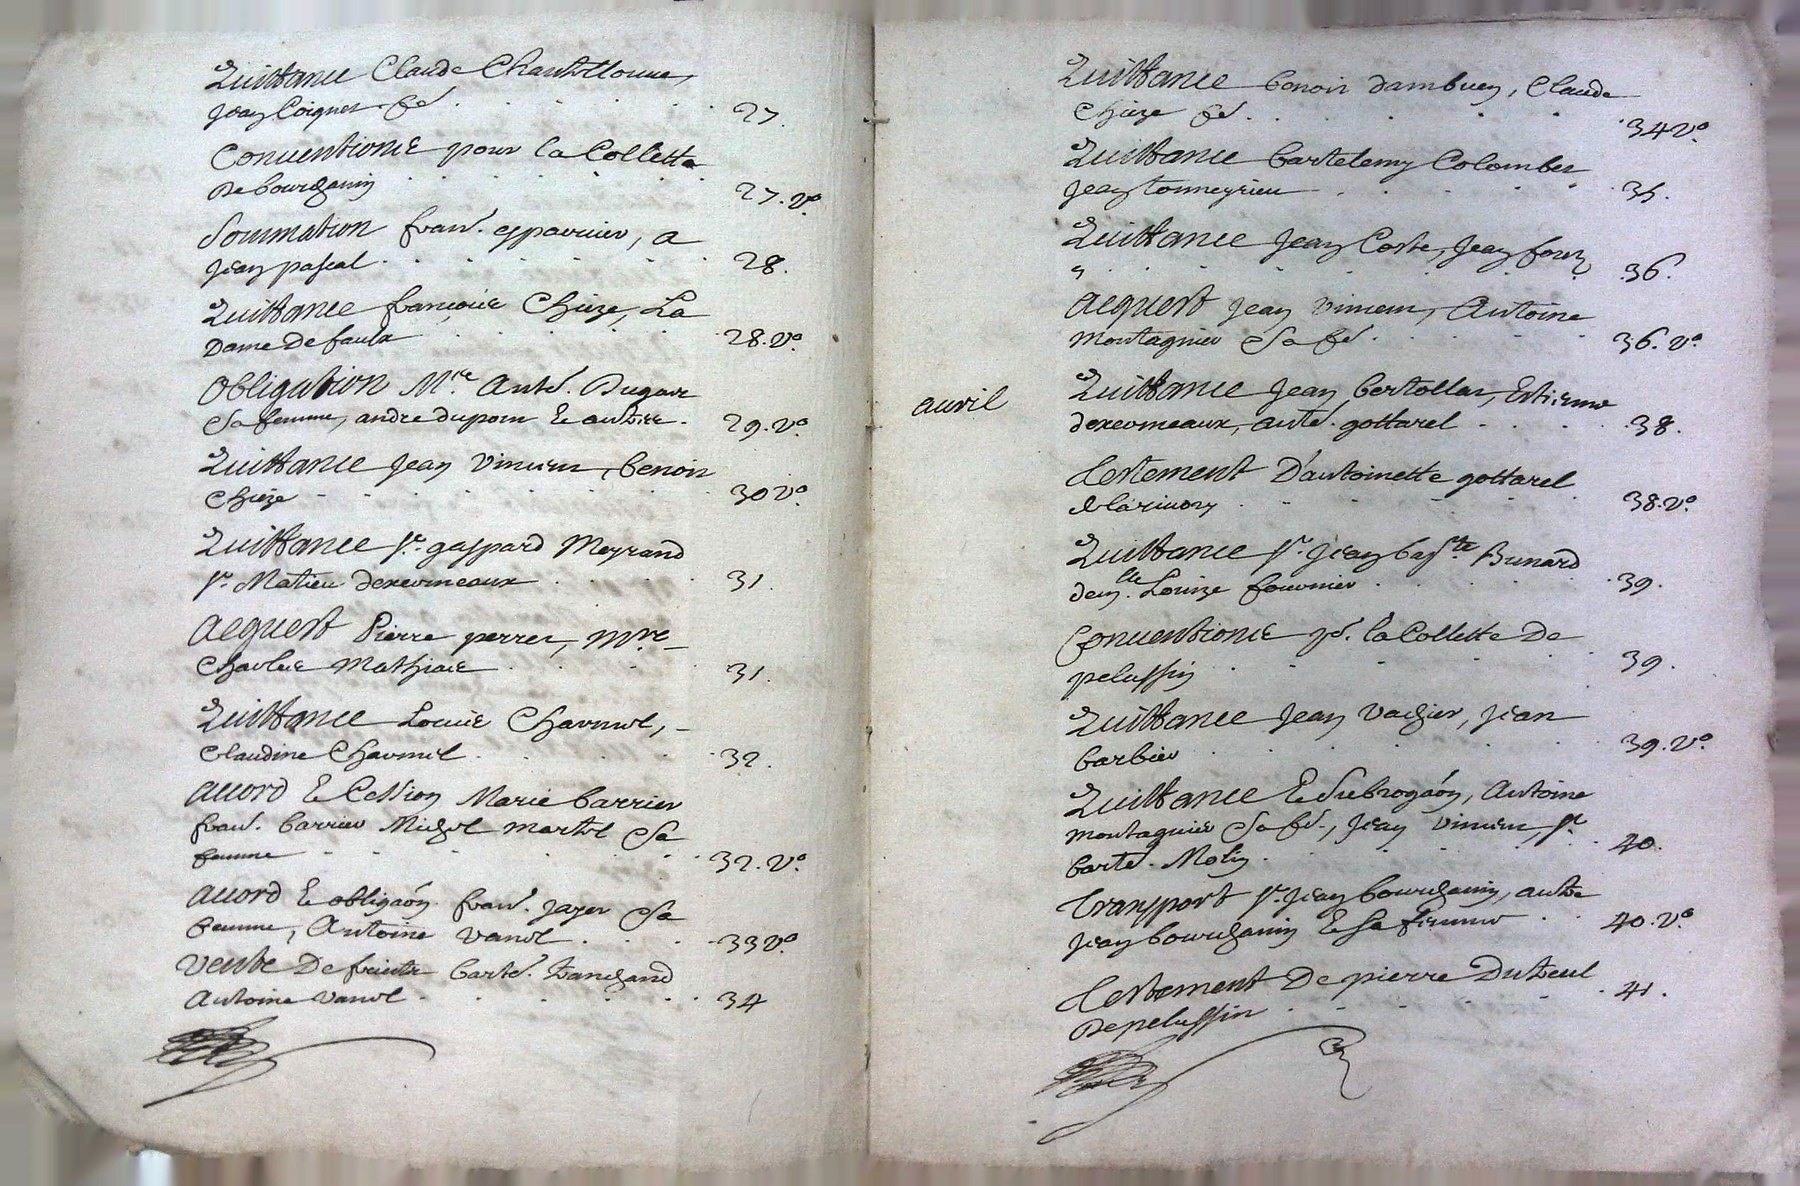 Quittance Claude Chantellouue,
Jean Coignet. fe. . . . . . 27.
Conuentions pour la Collette
De bourchanin . . . . . . 27. vº
Sommation fran. esparuier, a
Jean pascal . . . . . . 28.
Quittance françoise Chieze, La
Dame De faulx . . . . . 28. vº
Obligation Mre. Anté. Dugas
Sa femme, andre dupom & autres. 29. vº
Quittance Jean Vincens, benoit
Chieze . . . . . . 30 vº
Quittance Sr. gaspard Meyrand
Sr. Matieu dexeomeaux . . . . 31.
acquest Pierre perret, Mre
Charles Mathias . . . . 31.
Quittance Louis Charmet,
Claudine Charmet . . . . . 32.
accord & Cession Marie barrier
fran. barrier Michel martel Sa
femme . . . . . . 32. vº
accord & obligaõn. fran. jayer Sa
femme, Antoine vanel . . . . 33 vº
vente De fruits barté. tranchand
Antoine vanel . . . . . . 34
Quittance benoit dambuen, Claude
Chieze fe . . . . . 34 vº
Quittance bartelemy Colombet
Jean tonneyrieu . . . . . 35.
Quittance Jean Coste, Jean four
n . . . . . . 36.
acquest Jean Vincens, Antoine
montagnier Sa fe . . . . . 36. vº
auril
Quittance Jean bertollat, Estienne
dexeomeaux, anté. gottarel . . . . 38.
testement D'antoinette gottarel
. . . . . 38. vº
Quittance Sr. Jean bapte Bunard
demlle. Louize fournier . . . . 39.
Conuentions pr. la Collette De
pelussin . . . . . . 39.
Quittance Jean vachier, jean
barbier . . . . . . 39. vº
Quittance & Subrogaõn, Antoine
montagnier Sa fe., Jean Vincens, Sr.
barté. Molin . . . . . . 40.
transport Sr. Jean bourchanin, autre
Jean bourchanin & Sa femme . . 40. vº
testement De pierre Duteul
De pelussin . . . . . 41.